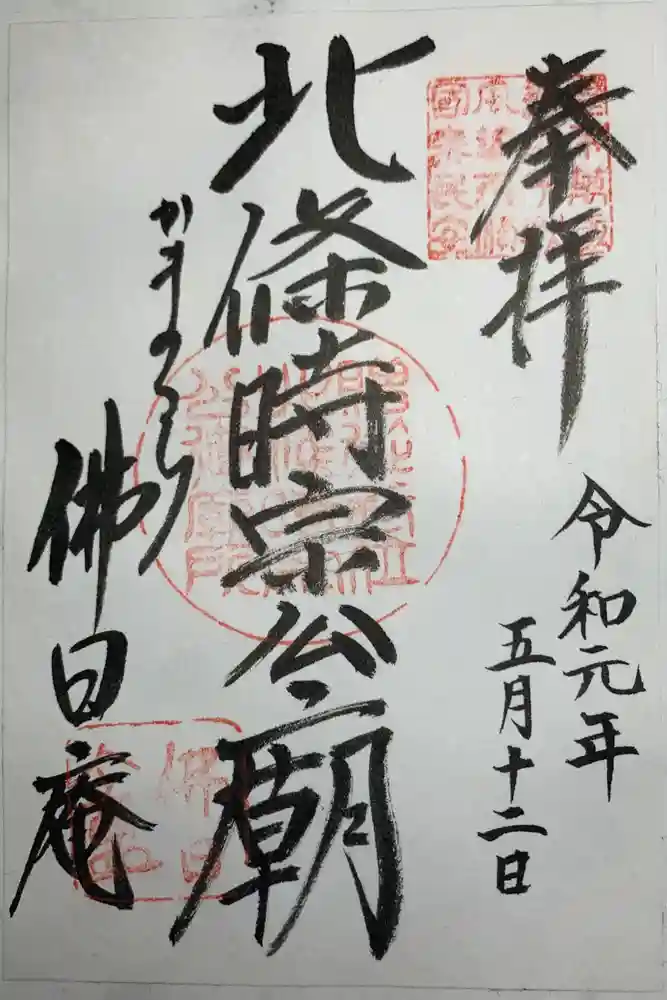 奉拝
令和元年
五月十二日
北條時宗公廟
かまくら
佛日庵
佛日